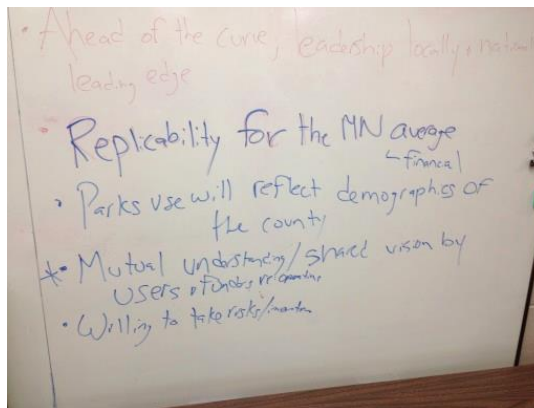 • Ahead of the curve, leadership locally + national
leading edge
• Replicability for the MN average
financial
• Parks use will reflect demographics of
the county
* • Mutual understanding/shared vision by
users + funders re
• Willing to take risks/